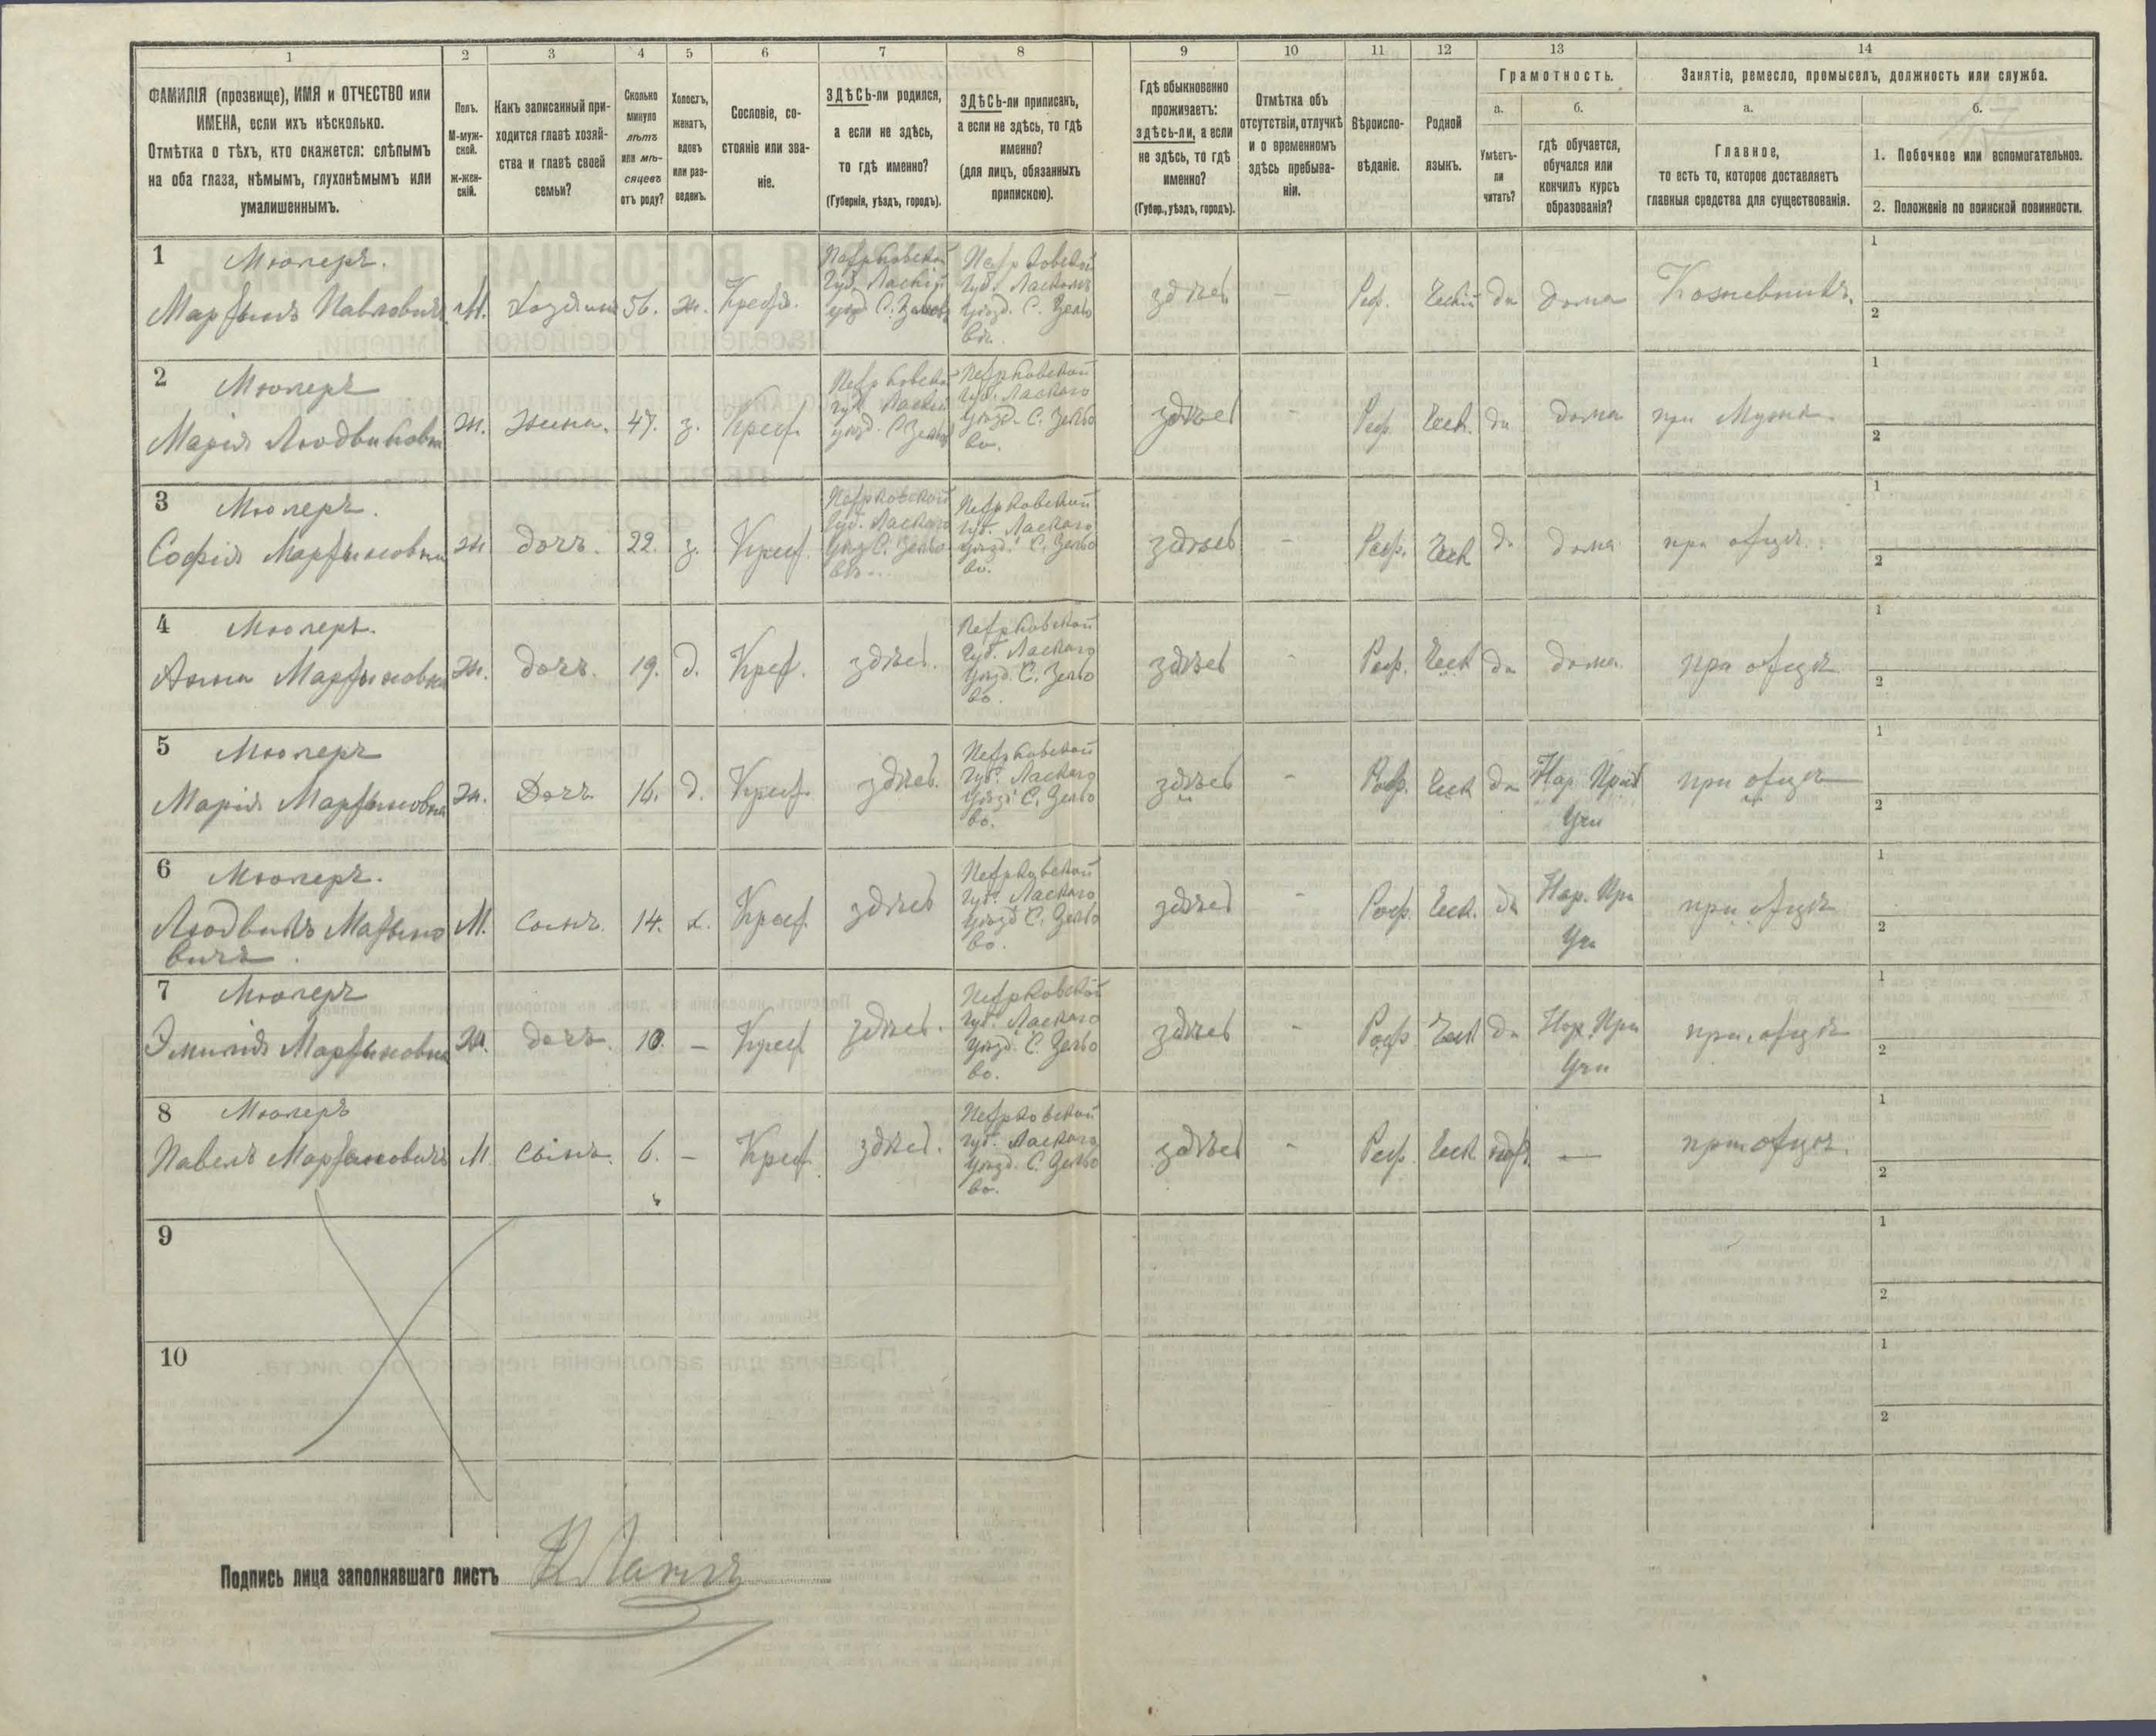 1
ФАМИЛІЯ (прозвище), ИМЯ и ОТЧЕСТВО или
ИМЕНА, если ихъ нѣсколько.
Отмѣтка о тѣхъ, кто окажется: слѣпымъ
на оба глаза, нѣмымъ, глухонѣмымъ или
умалишеннымъ.
2
Полъ.
М-муж-
ской.
ж-жен-
скій.
3
Какъ записанный при-
ходится главѣ хозяй-
ства и главѣ своей
семьи?
4
Сколько
минуло
лѣтъ
или мѣ-
сяцевъ
отъ роду?
5
Холостъ,
женатъ,
вдовъ
или раз-
веденъ.
6
Сословіе, со-
стояніе или зва-
ніе.
7
ЗДѢСЬ-ли родился,
а если не здѣсь,
то гдѣ именно?
(Губернія, уѣздъ, городъ).
8
ЗДѢСЬ-ли приписанъ,
а если не здѣсь, то гдѣ
именно?
(для лицъ, обязанныхъ
припискою).
9
Гдѣ обыкновенно
проживаетъ:
здѣсь-ли, а если
не здѣсь, то гдѣ
именно?
(Губер., уѣздъ, городъ).
10
Отмѣтка объ
отсутствіи, отлучкѣ
и о временномъ
здѣсь пребыва-
ніи.
11
Вѣроиспо-
вѣданіе.
12
Родной
языкъ.
13
Грамотность.
а.
Умѣетъ-
ли
читать?
б.
гдѣ обучается,
обучался или
кончилъ курсъ
образованія?
14
Занятіе, ремесло, промыселъ, должность или служба.
а.
Главное,
то есть то, которое доставляетъ
главныя средства для существованія.
б.
1. Побочное или вспомогательное.
2. Положеніе по воинской повинности.
1
Мюлеръ.
Мартынъ Павловичъ М. Хозяинъ 56. ж. Крест.
Петрковской
Губ. Ласкій
уѣзд С. Зелов
Петрковской
Губ. Ласкаго
уѣзд. С. Зело
въ.
здѣсь - Реф. Чешскій да дома
1
2
2
Мюлеръ
Марія Людвиковна ж. жена. 47. з. Крест.
Петрковской
губ. Ласкій
уѣзд. С Зелов
Петрковской
Губ. Ласкаго
уѣзд. С. Зело
во.
здѣсь - Реф. Чеш. да дома при Мужѣ.
1
2
3
Мюлеръ.
Софія Мартыновна ж дочь. 22. з. Крест.
Петрковской
Губ. Ласкаго
уѣзд С. Зело
въ.
Петрковской
губ. Ласкаго
уѣзд. С. Зело
во.
здѣсь - Реф. Чеш да дома при отцѣ.
1
2
4
Мюлеръ.
Анна Мартыновна ж. дочь. 19. д. Крест. здѣсь.
Петрковской
Губ. Ласкаго
уѣзд. С. Зело
во.
здѣсь - Реф. Чеш да дома при отцѣ
1
2
5
Мюлеръ
Марія Мартыновна ж. Дочь 16. д. Крест здѣсь.
Петрковской
Губ. Ласкаго
уѣзд С. Зело
во.
здѣсь - Реф. Чеш да Нар. При
Учи
при отцѣ
1
2
6
Мюлеръ.
Людвикъ Мартыно
вичъ.
М. сынъ. 14. х. Крест здѣсь
Петрковской
губ. Ласкаго
уѣзд С. Зело
во.
здѣсь - Реф. Чеш. да Нар. При
Учи
при отцѣ
1
2
7
Мюлеръ
Эмилія Мартыновна ж. дочь. 10. - Крест здѣсь.
Петрковской
губ. Ласкаго
уѣзд. С. Зело
во.
здѣсь - Реф Чеш да Нар. При
Учи
при отцѣ
1
2
8
Мюлеръ
Павелъ Мартыновичъ М. сынъ. 6. - Крест здѣсь.
Петрковской
губ. Ласкаго
уѣзд. С. Зело
во.
здѣсь - Реф. Чеш. — при отцѣ.
1
2
9
1
2
10
1
2
Подпись лица заполнявшаго листъ